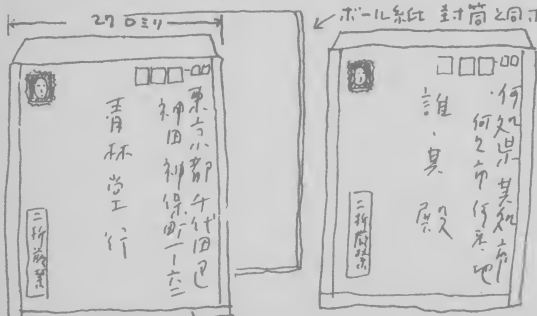 270ミリ
ボール紙 封筒と同ホ
東京都千代田区
神田神保町一ー六二
青林堂行
二折厳禁
何処県某処市
何之命 何末地
誰・某殿
二折厳禁